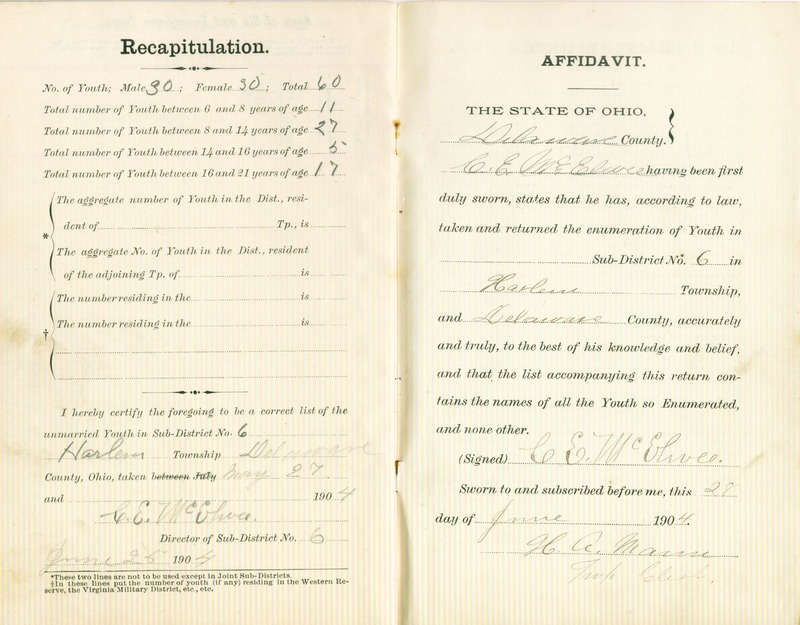 Recapitulation.
No. of Youth; Male 30; Female 30; Total 60
Total number of Youth between 6 and 8 years of age 11
Total number of Youth between 8 and 14 years of age 27
Total number of Youth between 14 and 16 years of age 5
Total number of Youth between 16 and 21 years of age 17
The aggregate number of Youth in the Dist., resi-
dent of Tp., is
*
The aggregate No. of Youth in the Dist., resident
of the adjoining Tp. of is
The number residing in the is
†
The number residing in the is
I hereby certify the foregoing to be a correct list of the
unmarried Youth in Sub-District No. 6
Harlem Township Delaware
County, Ohio, taken between July May 27
and 1904
C. E. McElwee.
Director of Sub-District No. 6
June 25 1904
*These two lines are not to be used except in Joint Sub-Districts.
†In these lines put the number of youth (if any) residing in the Western Re-
serve, the Virginia Military District, etc., etc.
AFFIDAVIT.
THE STATE OF OHIO, }
Delaware County.
C. E. McElwee having been first
duly sworn, states that he has, according to law,
taken and returned the enumeration of Youth in
Sub-District No. 6 in
Harlem Township,
and Delaware County, accurately
and truly, to the best of his knowledge and belief,
and that the list accompanying this return con-
tains the names of all the Youth so Enumerated,
and none other.
(Signed) C. E. McElwee.
Sworn to and subscribed before me, this 28
day of June 1904.
H. A. Mann
Twp Clerk.